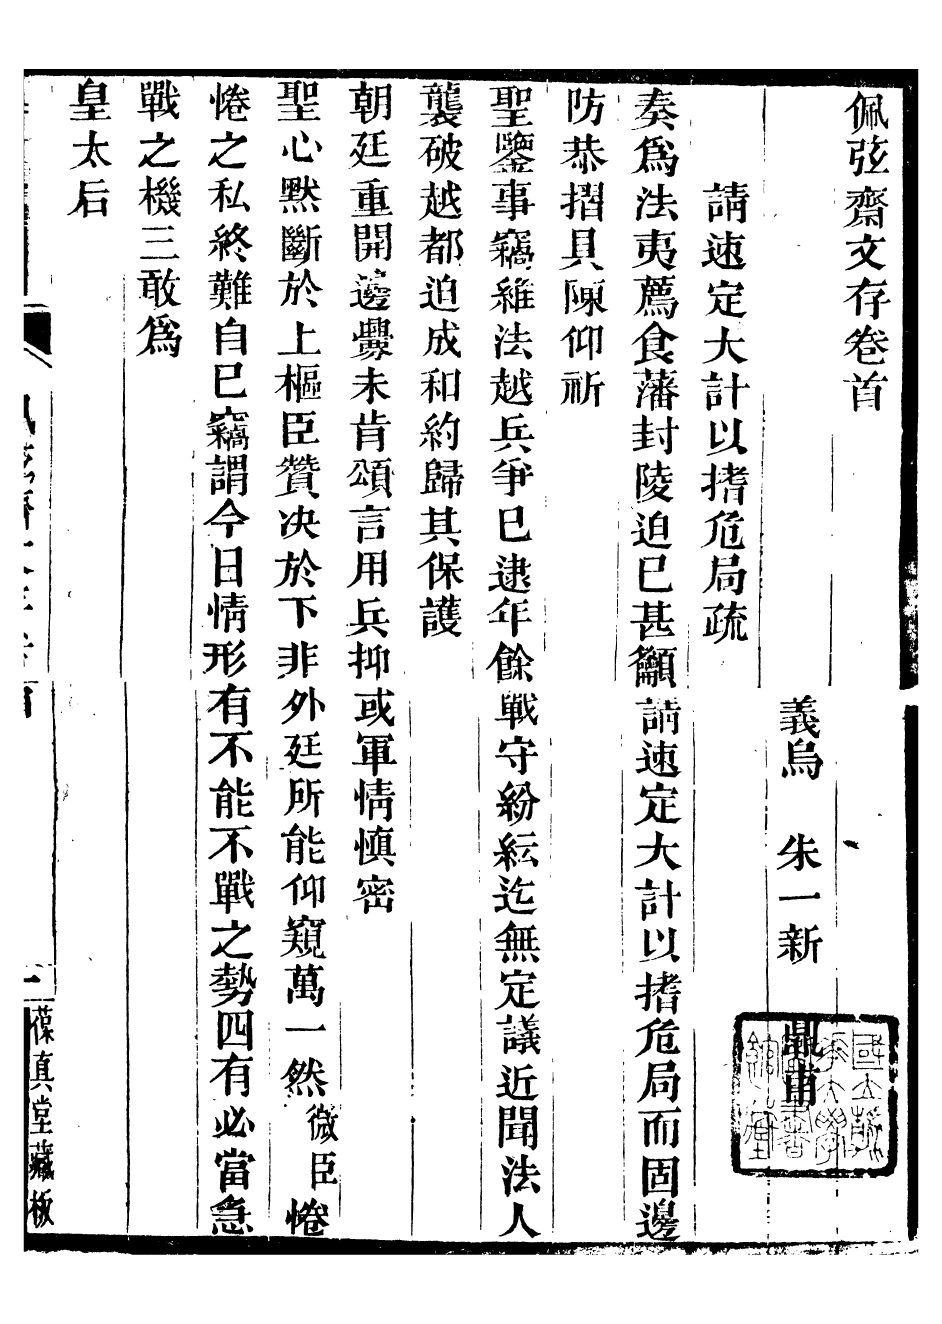 佩弦齋文存卷首
義烏　朱一新　鼎甫
請速定大計以搘危局疏
奏爲法夷薦食藩封陵迫已甚籲請速定大計以搘危局而固邊
防恭摺具陳仰祈
聖鑒事竊維法越兵爭已逮年餘戰守紛紜迄無定議近聞法人
襲破越都迫成和約歸其保護
朝廷重開邊釁未肯頌言用兵抑或軍情愼密
聖心默斷於上樞臣贊决於下非外廷所能仰窺萬一然微臣惓
惓之私終難自已竊謂今日情形有不能不戰之勢四有必當急
戰之機三敢爲
皇太后
葆真堂藏板